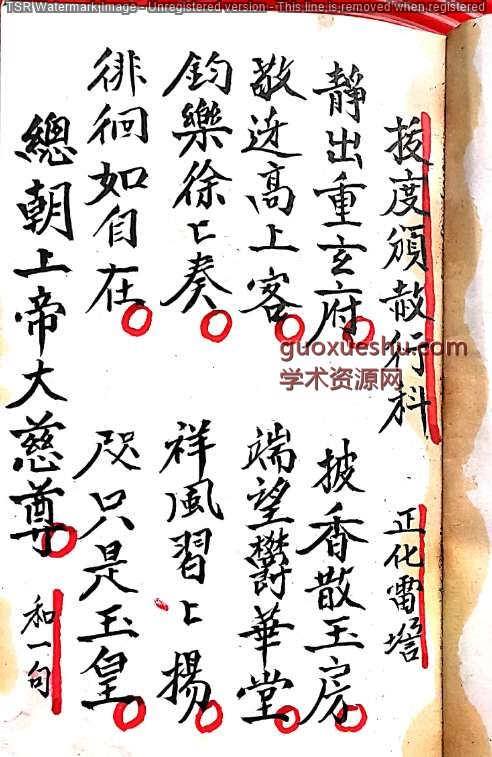 TSR Watermark Image - Unregistered version - This line is removed when registered
拔度頒赦行科 正化雷壇
靜出重玄府 披香散玉房
敬迓高上客 端望欝華堂
鈞樂徐〻奏 祥風習〻揚
徘徊如自在 咫只是玉皇
總朝上帝大慈尊 和一句
guoxueshu.com
学术资源网